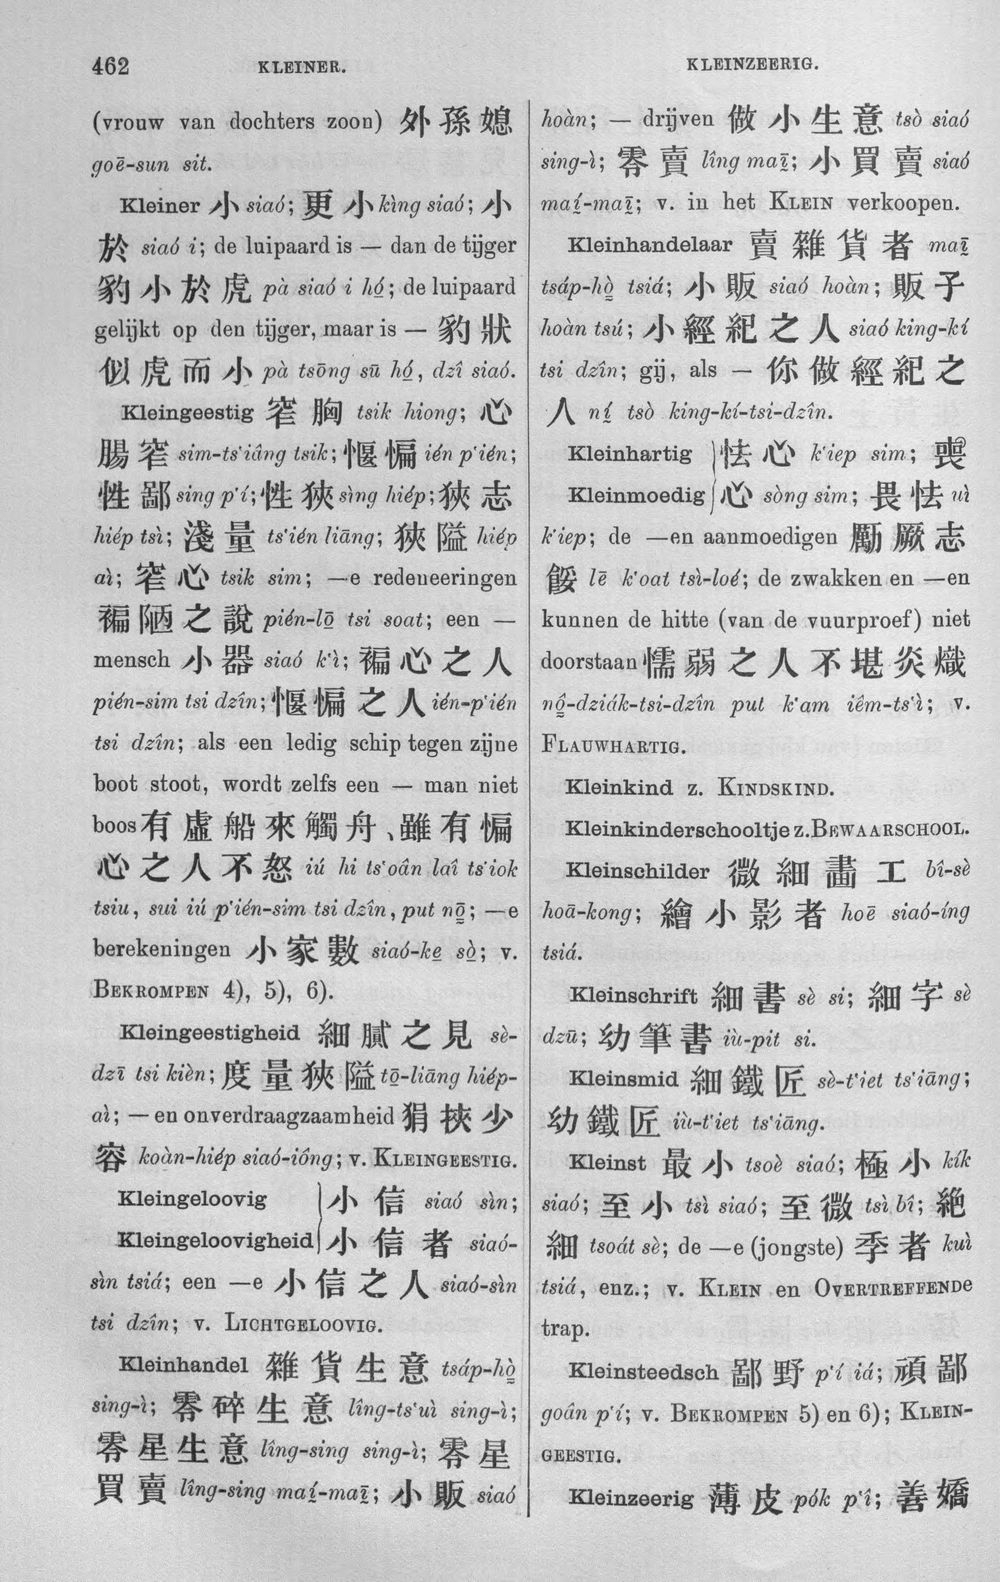 462
KLEINER.
KLEINZEERIG.
(vrouw van dochters zoon) 外孫媳
goē-sun sit.
Kleiner 小 siaó; 更小 kìng siaó; 小
於 siaó i; de luipaard is — dan de tijger
豹小於虎 pà siaó i hó̤; de luipaard
gelijkt op den tijger, maar is — 豹狀
似虎而小 pà tsōng sū hó̤, dzî siaó.
Kleingeestig 窄胸 tsik hiong; 心
腸窄 sim-ts‘iâng tsik; 惬惼 ién p‘ién;
性鄙 sìng p‘í; 性狹 sìng hiép; 狹志
hiép tsì; 淺量 ts‘ién liāng; 狹隘 hiép
aì; 窄心 tsik sim; —e redeneeringen
褊陋之說 pién-lō̤ tsi soat; een —
mensch 小器 siaó k‘ì; 褊心之人
pién-sim tsi dzîn; 惼之人 ién-p‘ién
tsi dzîn; als een ledig schip tegen zijne
boot stoot, wordt zelfs een — man niet
boos 有虛船來觸舟、雖有惼
心之人不怒 iú hi ts‘oân laî ts‘iok
tsiu, sui iú p‘ién-sim tsi dzîn, put nō̤; —e
berekeningen 小家數 siaó-ke̤ sò̤; v.
BEKROMPEN 4), 5), 6).
Kleingeestigheid 細膩之見 sè-
dzī tsi kièn; 度量狹隘 tō̤-liāng hiép-
aì; — en onverdraagzaamheid 狷挾少
容 koàn-hiép siaó-iông; v. KLEINGEESTIG.
Kleingeloovig 小信 siaó sìn;
Kleingeloovigheid 小信者 siaó-
sìn tsiá; een —e 小信之人 siaó-sìn
tsi dzîn; v. LICHTGELOOVIG.
Kleinhandel 雜貨生意 tsáp-hò̤
sing-ì; 零碎生意 lîng-ts‘uì sing-ì;
零星生意 lîng-sing sing-ì; 零星
買賣 lîng-sing maí̤-maī̤; 小販 siaó
hoàn; — drijven 做小生意 tsò siaó
sing-ì; 零賣 lîng maī̤; 小買賣 siaó
maí̤-maī̤; v. in het KLEIN verkoopen.
Kleinhandelaar 賣雜貨者 maī̤
tsáp-hò̤ tsiá; 小販 siaó hoàn; 販子
hoàn tsú; 小經紀之人 siaó king-kí
tsi dzîn; gij, als — 你做經紀之
人 ní̤ tsò king-kí-tsi-dzîn.
Kleinhartig 怯心 k‘iep sim; 喪
Kleinmoedig 心 sòng sim; 畏怯 uì
k‘iep; de —en aanmoedigen 勵厥志
餒 lē k‘oat tsì-loé; de zwakken en —en
kunnen de hitte (van de vuurproef) niet
doorstaan 懦弱之人不堪炎熾
nō̤-dziák-tsi-dzîn put k‘am iêm-ts‘ì; v.
FLAUWHARTIG.
Kleinkind z. KINDSKIND.
Kleinkinderschooltje z. BEWAARSCHOOL.
Kleinschilder 微細畵工 bî-sè
hoā-kong; 繪小影者 hoē siaó-íng
tsiá.
Kleinschrift 細書 sè si; 細字 sè
dzū; 幼筆書 iù-pit si.
Kleinsmid 細鐵匠 sè-t‘iet ts‘iāng;
幼鐵匠 iù-t‘iet ts‘iāng.
Kleinst 最小 tsoè siaó; 極小 kík
siaó; 至小 tsì siaó; 至微 tsì bî; 絕
細 tsoát sè; de —e (jongste) 季者 kuì
tsiá, enz.; v. KLEIN en OVERTREFFENDe
trap.
Kleinsteedsch 鄙野 p‘í iá; 頑鄙
goân p‘í; v. BEKROMPEN 5) en 6); KLEIN-
GEESTIG.
Kleinzeerig 薄皮 pók p‘î; 善嬌